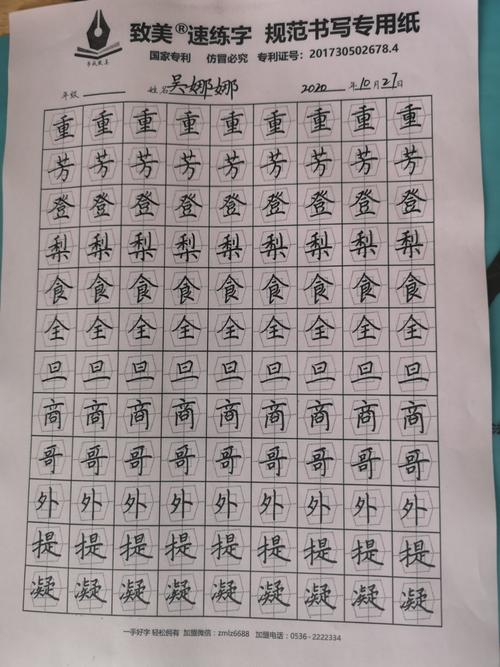 致美®速练字 规范书写专用纸
国家专利 仿冒必究 专利证号：201730502678.4
年级 姓名 吴娜娜 2020年10月27日
重重重重重重重重重
芳芳芳芳芳芳芳芳芳
登登登登登登登登登
梨梨梨梨梨梨梨梨梨
食食食食食食食食食
全全全全全全全全全
旦旦旦旦旦旦旦旦旦
商商商商商商商商商
哥哥哥哥哥哥哥哥哥
外外外外外外外外外
提提提提提提提提提
凝凝凝凝凝凝凝凝凝
一手好字 轻松拥有 加盟微信：zmlz6688 加盟电话：0536-2222334